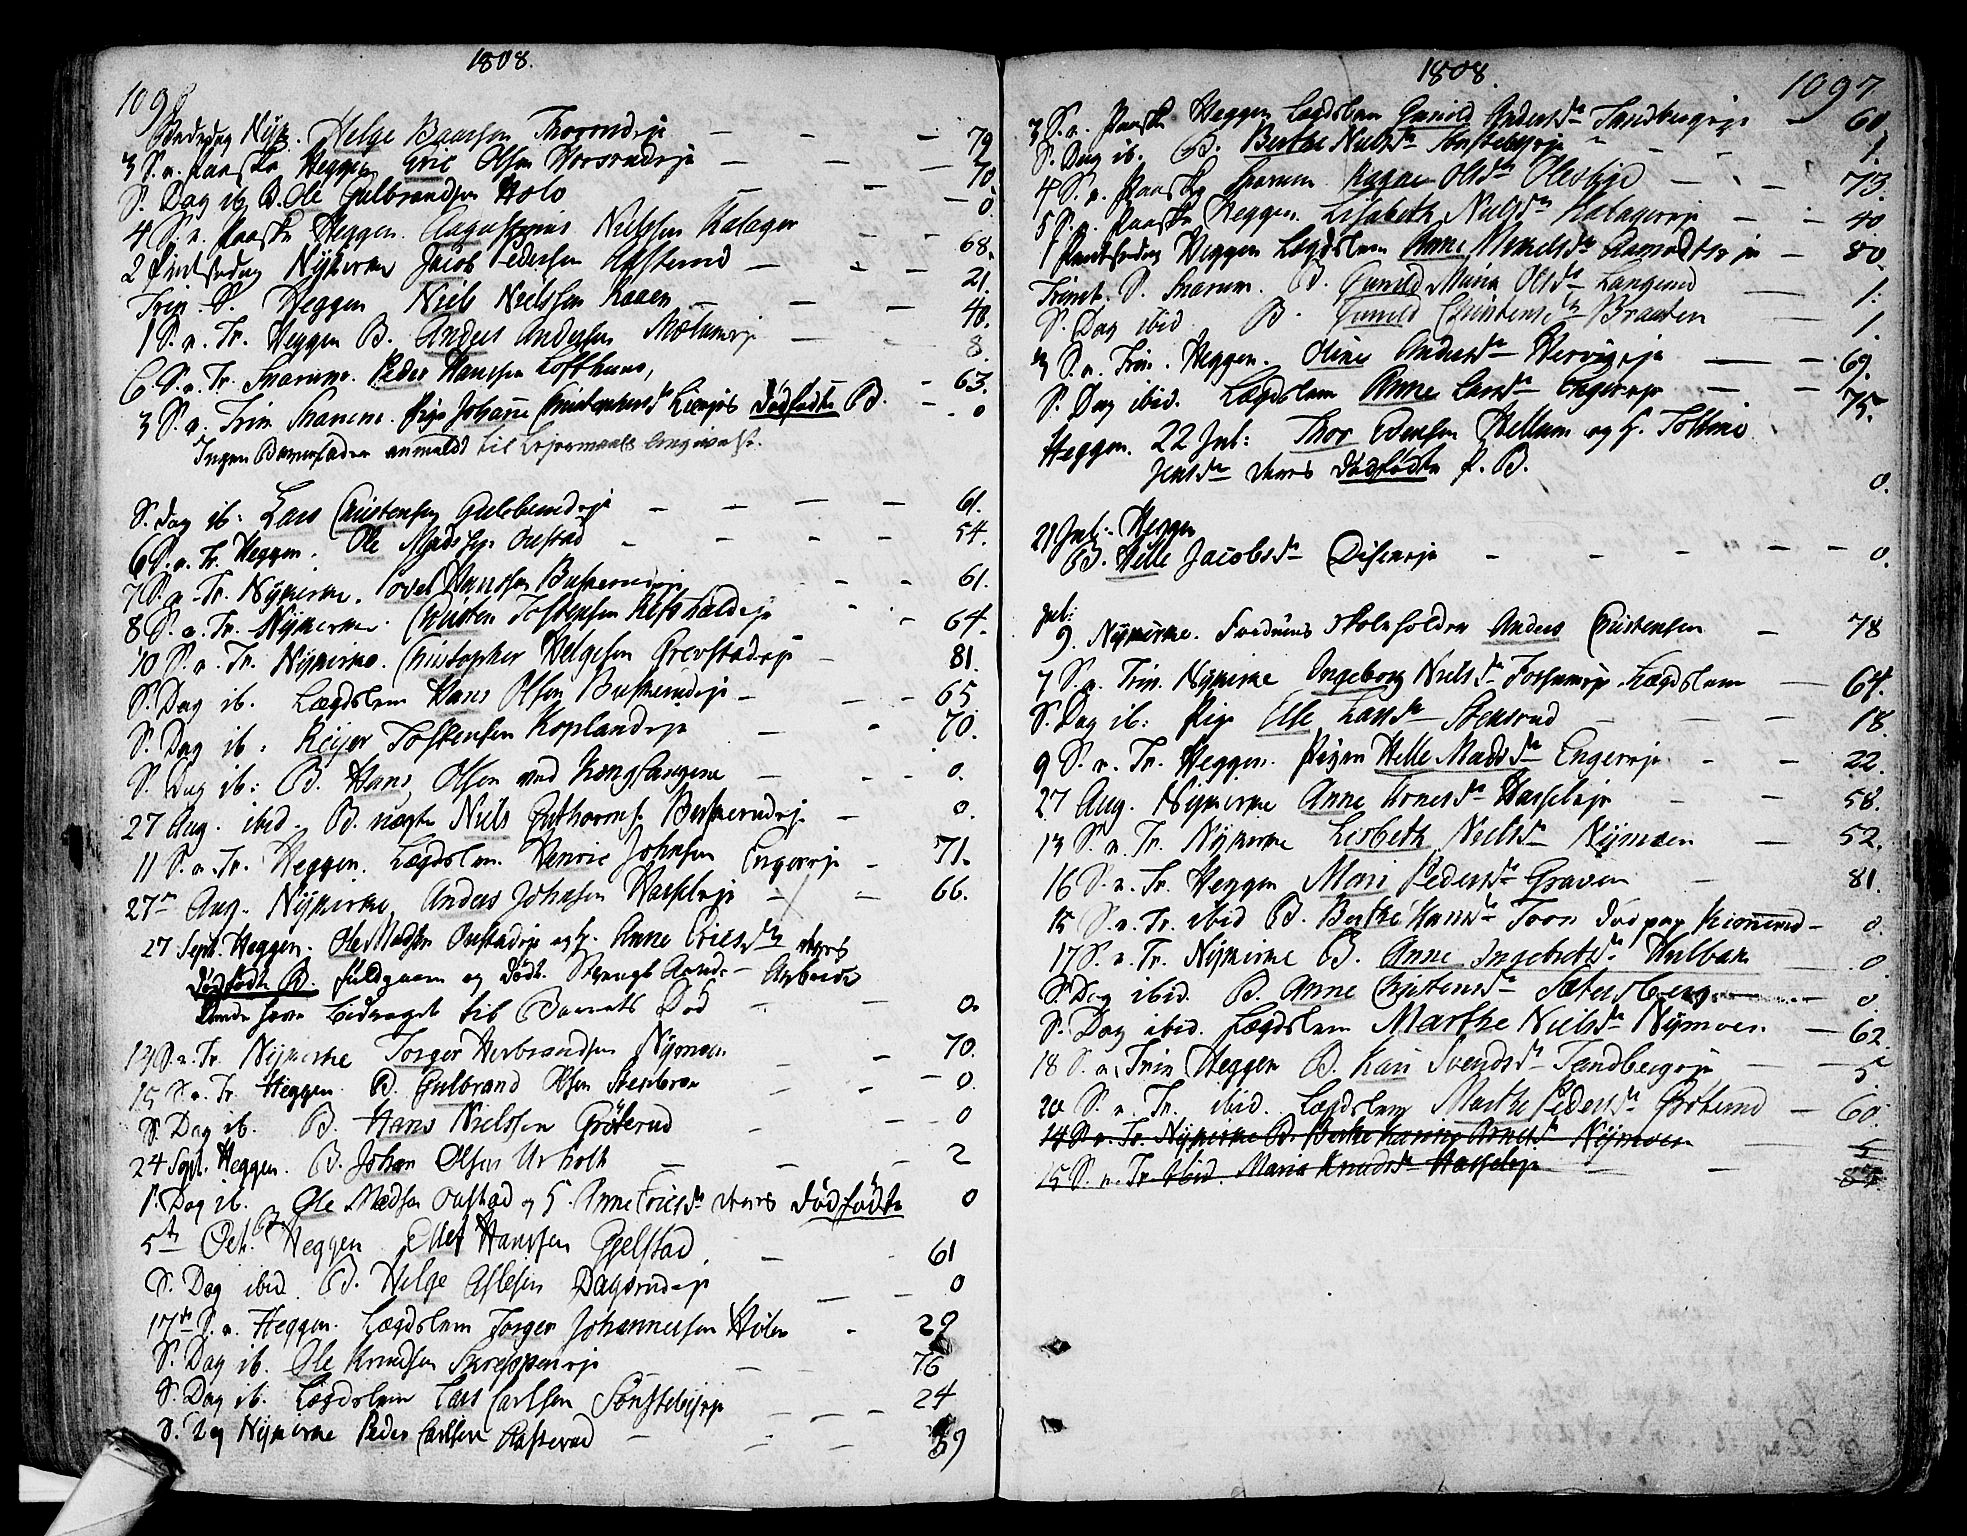 1808.
109
Bededag Nyk. Helge Baarsen Thorrudeje 79
3 S. e. Paaske Heggen Eric Olsen Horsrudeje 70
S. Dag ib. B. Ole Gulbrandsen Holo 0
4 S. e. Paaske Heggen. Augustinus Nielsen Kalager 68.
2 Pintsedag Nykirke Jacob Pedersen Hafterud 21.
Trin. S. Heggen Niels Nielssen Kaaen 48.
1 S. e. Tr. Heggen B. Anders Andersen Mælumeje 8.
6 S. e. Tr. Snarum. Peder Hanssen Loffthuus, 63.
3 S. e. Trin Snarum. Pige Johanne Christophersdr Lien dødfødte B. 0
Ingen Barnefader anmeldt til Lejermaals Angivelse.
S. Dag ib: Lars Christensen Gulebundeje 61.
6 S. e. Tr. Heggen. Ole Madssen Ourstad 54.
7 S. e. Tr. Nykirke. Povel Hanssen Buskerudeje 61.
8 S. e. Tr. Nykirke. Christen Tostensen Refshaldeje 64.
10 S. e. Tr. Nykirke. Christopher Helgesen Grevstadeje 81.
S. Dag ib. Lægdslem Hans Olsen Buskerudeje 65
S. Dag ib. Reijer Tostensen Koplandeje 70.
S. Dag ib: B. Hans Olsen ved Kongsangene 0.
27 Aug. ibid. B. uægte Niels Guthorms. Buskerudeje 0.
11 S. e. Tr. Heggen. Lægdslem Henric Johnsen Engereje 71.
27de Aug. Nykirke Anders Johnsen Hasseleje 66.
27 Sept. Heggen. Ole Madssen Ourstadeje og h. Anne Ericsdr deres
dødfødte B. fuldgaaen og dødt. Strengt Arbeide
kunde have bidraget til Barnets Død 0.
13 S. e. Tr. Nykirke Torger Herbrandsen Nymoen 70.
15 S. e. Tr. Heggen. B. Gulbrand Olsen Steenbroe 0.
S. Dag ib. B. Hans Nielssen Grøterud 0
24 Sept. Heggen. B. Johan Olsen Urholt 2
S. Dag ib. Ole Madsen Ourstad og H. Anne Ericsdr deres dødfødte B. 0
5te Oct. Heggen Ellef Hanssen Gjelstad 61
S. Dag ibid. B. Helge Aslesen Dagsrudeje 0
17de S. e. Heggen. Lægdslem Torger Johannessen Holen 29
S. Dag ib. Ole Knudsen Skreppeneje 76
S. Dag ib. Lægdslem Lars Carlsen Sønstebyeje 24
S. Dag Nykirke Peder Carlsen Hafterud 59
1808.
1097
3 S. e. Paaske Heggen Lægdslem Gunild Andersdr Sandbergeje 60
S. Dag ib. B. Berthe Nielsdr Sønstebyeje 1.
4 S. e. Paaske Snarum Ragne Olsdr Olevkje 73.
5 S. e. Paaske Heggen. Lisabeth Nielsdr Kalagereje 40
1 Pintsedag Heggen Lægdslem Anne Monsdr Aamodtseje 80.
Trinit. S. Snarum. B. Gunild Maria Olsdr Langerud 1.
S. Dag ibid B. Gunild Christensdr Braaten 1.
3 S. e. Trin. Heggen. Oline Andersdr Hervigeje 69.
S. Dag ibid. Lægdslem Anne Larsdr Engereje 75.
Heggen. 22 Jul: Thor Evensen Hellum og h. Tolline
Jensdr deres dødfødte P. B. 0.
21 Jul: Heggen
B. Helle Jacobsdr Diseneje 0.
Jul:
9. Nykirke. Forduums Skoleholder Anders Christensen 78
7 S. e. Trin. Nykirke Ingeborg Nielsdr Fossumeje Lægdslem 64.
S. Dag ib: Pige Else Larsdr Steensrud 18.
9 S. e. Tr. Heggen. Pigen Helle Madsdr Engereje 22.
27 Aug. Nykirke Anne Arnesdr Hasseleje 58.
13 S. e. Tr. Nykirke Lisbeth Nielsdr Nymoen 52.
16 S. e. Tr. Heggen Mari Pedersdr Graven 81.
15 S. e. Tr. ibid B. Berthe Hansdr Foss død paa Kionnerud 0
17 S. e. Tr. Nykirke B. Anne Ingebretsdr Hulbak 0
S. Dag ibid. B. Anne Christensdr Sætersberg 0
S. Dag ibid. Lægdslem Marthe Nielsdr Nymoen 62.
18 S. e. Trin Heggen B. Kari Svendsdr Sandbergeje 5
20 S. e. Tr. ibid. Lægdslem Marthe Pedersdr Grøterud 60.
14 S. e. Tr. Nykirke B. Berthe Hanna Arnesdr Nymoen 5
15 S. e. Tr. ibid. Maria Knudsdr Hasseleje 84